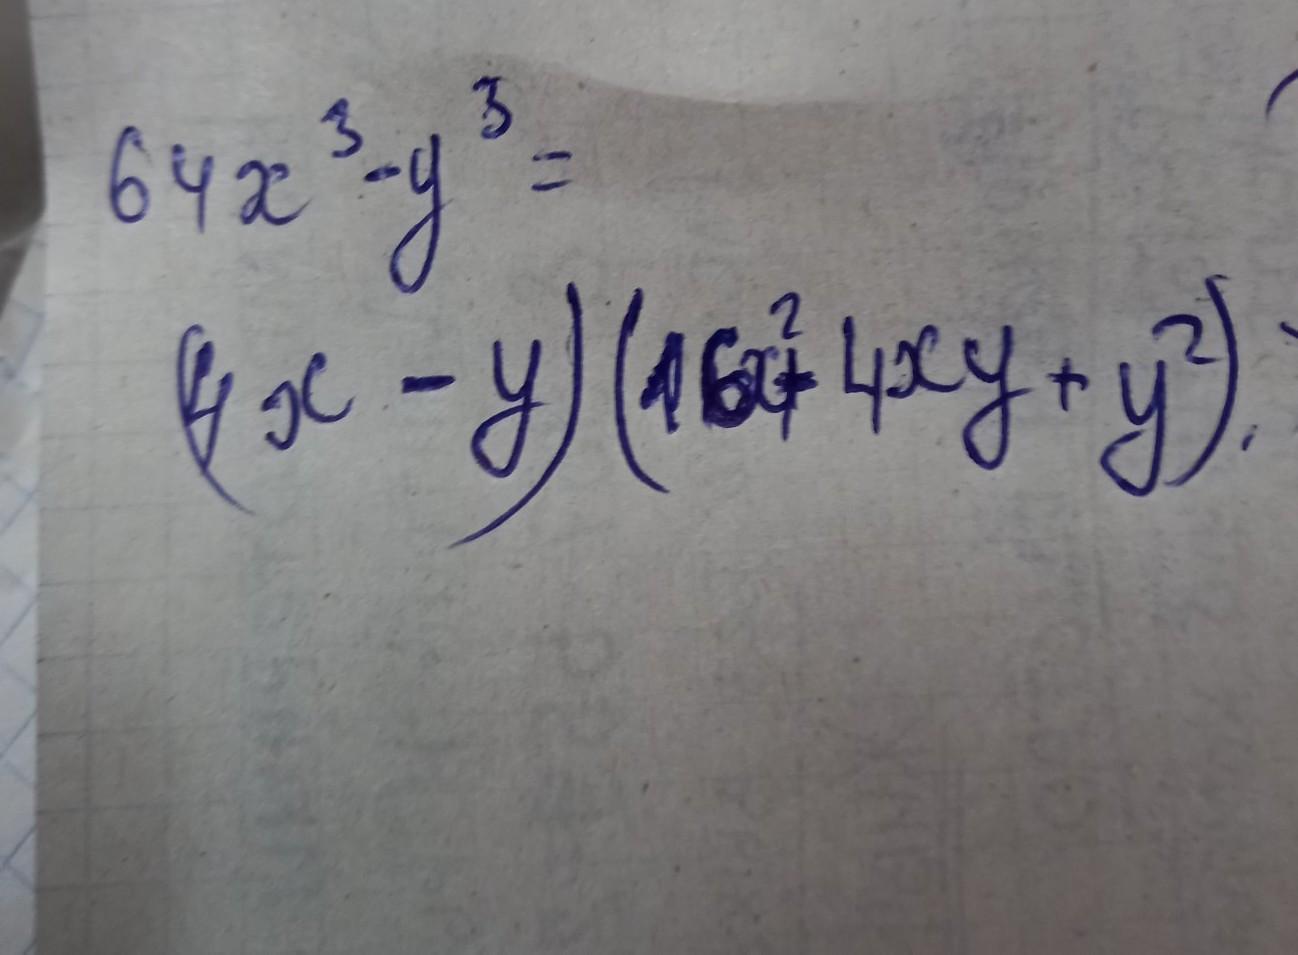 64x³-y³=
(4x - y)(16x²+ 4xy + y²).